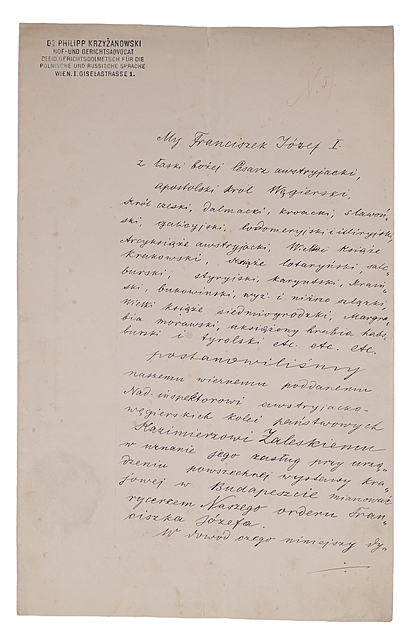 DR PHILIPP KRZYŻANOWSKI
HOF-UND GERICHTSADVOCAT
BEEID. GERICHTSDOLMETSCH FÜR DIE
POLNISCHE UND RUSSISCHE SPRACHE
WIEN, I. GISELASTRASSE 1.
My Franciszek Józef I.
z łaski bożej Cesarz austryjacki,
apostolski król Węgierski,
Król czeski, dalmacki, kroacki, Slawoń,,
ski, galicyjski, lodomeryjski i illiryjski,
Arcyksiąże austryjacki, Wielki książe
Krakowski, Książe lotaryński, salc,,
burski, styryjski, karyntski, Kraiń,,
ski, bukowiński, wyż. i niższo szląski,
Wielki książe siedmiogrodzki, Margra,,
bia morawski, uksiążony hrabia habs,,
burski i tyrolski etc. etc. etc.
postanowiliśmy
naszemu wiernemu poddanemu
Nad-inspektorowi austryjacko-
węgierskich kolei państwowych
Kazimierzowi Zaleskiemu
w uznanie jego zasług przy urzą,,
dzeniu powszechnej wystawy kra,,
jowej w Budapeszcie mianować
rycerzem Naszego orderu Fran,,
ciszka Józefa.
W dowód czego niniejszy dy,,